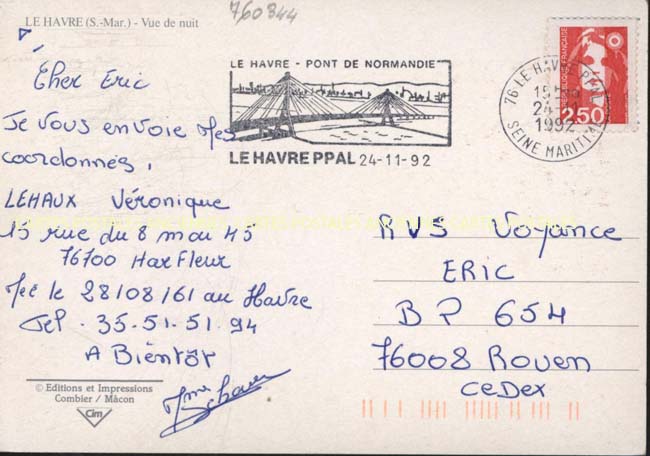 LE HAVRE (S.-Mar.) - Vue de nuit
760344
Cher Eric
Je vous envoie mes
coordonnées,
LEHAUX Véronique
15 rue du 8 mai 45
76700 Harfleur
Née le 28/08/61 au Havre
Tel. 35.51.51.94
A Bientôt
Mme
© Editions et Impressions
Combier / Mâcon
Cim
LE HAVRE - PONT DE NORMANDIE
LE HAVRE PPAL 24-11-92
76 LE HAVRE PPAL
15H
24-11
1992
SEINE MARITIME
REPUBLIQUE FRANÇAISE
2,50
RVS Voyance
ERIC
BP 654
76008 Rouen
Cedex